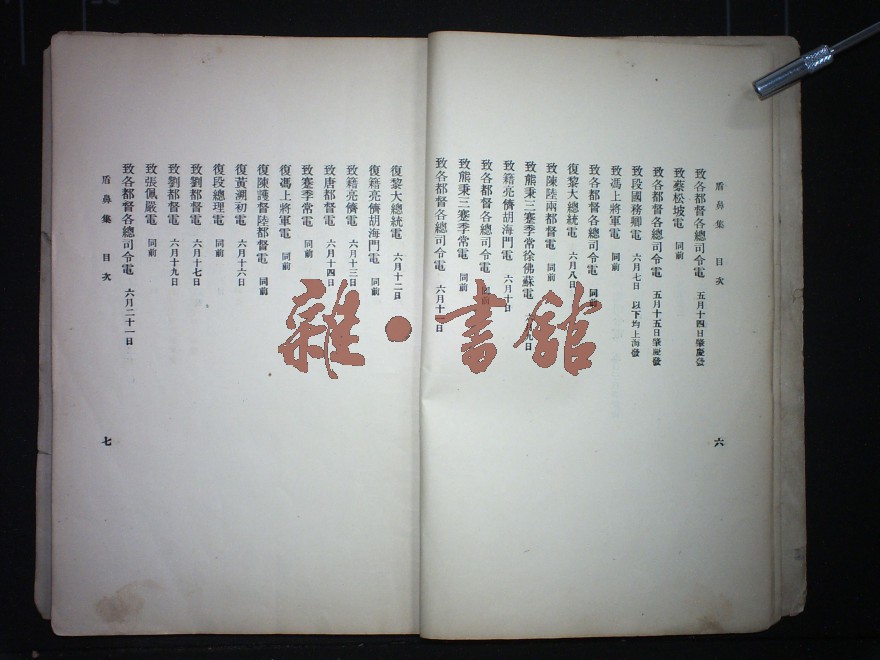 盾鼻集 目次
六
致各都督各總司令電 五月十四日肇慶發
致蔡松坡電 同前
致各都督各總司令電 五月十五日肇慶發
致段國務卿電 六月七日 以下均上海發
致馮上將軍電 同前
致各都督各總司令電 同前
復黎大總統電 六月八日
致陳陸兩都督電 同前
致熊秉三蹇季常徐佛蘇電 九日
致籍亮儕胡海門電 六月十日
致各都督各總司令電 同前
致熊秉三蹇季常電 同前
致各都督各總司令電 六月十一日
復黎大總統電 六月十二日
復籍亮儕胡海門電 同前
致籍亮儕電 六月十三日
致唐都督電 六月十四日
致蹇季常電 同前
復馮上將軍電 同前
復陳護督陸都督電 同前
復黃溯初電 六月十六日
復段總理電 同前
致劉都督電 六月十七日
致劉都督電 六月十九日
致張佩嚴電 同前
致各都督各總司令電 六月二十一日
盾鼻集 目次
七
雜·書館